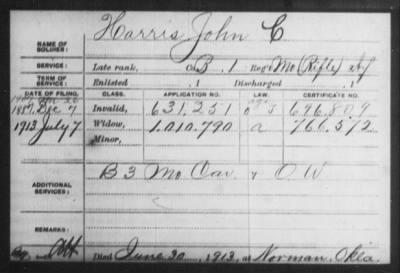 Harris, John C
NAME OF SOLDIER:
SERVICE: Late rank, Co. B, 1 Reg't Mo (Rifle)
TERM OF SERVICE: Enlisted , 1 Discharged , 1
DATE OF FILING. CLASS. APPLICATION NO. LAW. CERTIFICATE NO.
1887, Dec 7 Invalid, 631.251 696.809
1913 July 7 Widow, 1.010.790 a 766.572
Minor,
ADDITIONAL SERVICES: B 3 Mo. Cav & O W
REMARKS:
Died June 30, 1913, at Norman, Okla.